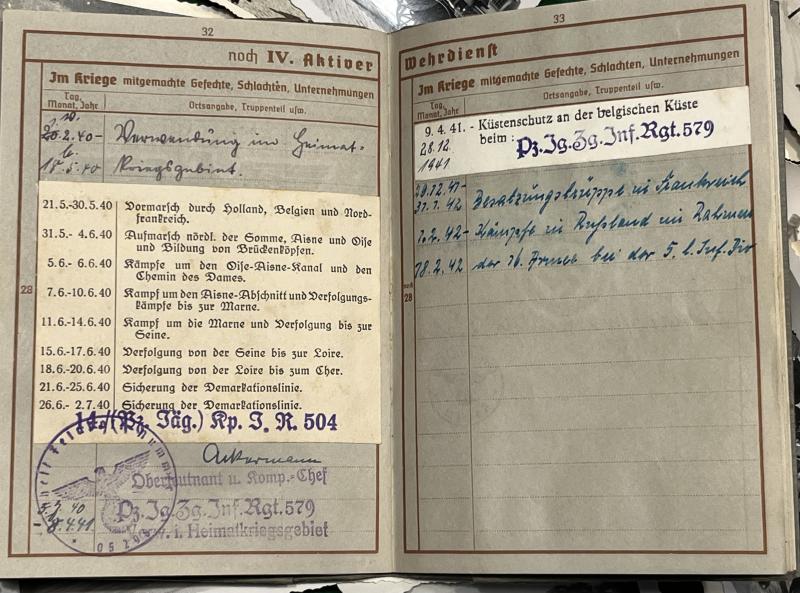 32
noch IV. Aktiver
Im Kriege mitgemachte Gefechte, Schlachten, Unternehmungen
Tag, Monat, Jahr
Ortsangabe, Truppenteil usw.
20.2.40- Verwendung im Heimat-
18.5.40 kriegsgebiet.
21.5.-30.5.40 Vormarsch durch Holland, Belgien und Nord-
frankreich.
31.5.- 4.6.40 Aufmarsch nördl. der Somme, Aisne und Oise
und Bildung von Brückenköpfen.
5.6.- 6.6.40 Kämpfe um den Oise-Aisne-Kanal und den
Chemin des Dames.
28
7.6.-10.6.40 Kampf um den Aisne-Abschnitt und Verfolgungs-
kämpfe bis zur Marne.
11.6.-14.6.40 Kampf um die Marne und Verfolgung bis zur
Seine.
15.6.-17.6.40 Verfolgung von der Seine bis zur Loire.
18.6.-20.6.40 Verfolgung von der Loire bis zum Cher.
21.6.-25.6.40 Sicherung der Demarkationslinie.
26.6.- 2.7.40 Sicherung der Demarkationslinie.
14.(Pz. Jäg.) Kp. J. R. 504
Ackermann
Oberleutnant u. Komp.-Chef
Pz.Jg.Zg.Inf.Rgt.579
i. Heimatkriegsgebiet
33
Wehrdienst
Im Kriege mitgemachte Gefechte, Schlachten, Unternehmungen
Tag, Monat, Jahr
Ortsangabe, Truppenteil usw.
9. 4. 41. - Küstenschutz an der belgischen Küste
28.12. beim: Pz.Jg.Zg.Inf.Rgt.579
1941
31.1.42 Besatzungstruppe in Frankreich
1.2.42- Kämpfe in Rußland im Rahmen
18.2.42 der 16. Armee bei der 5. l. Inf. Div
noch
28